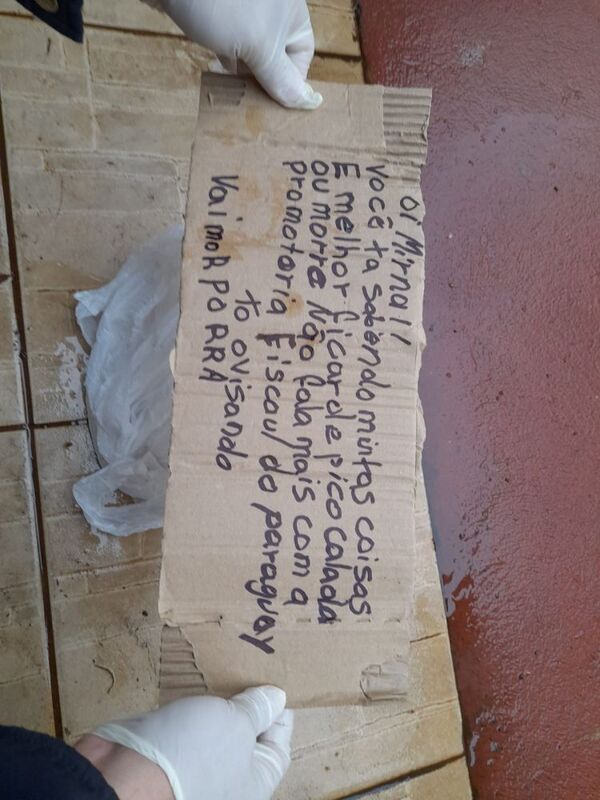 OI MIRNA!!
você ta sabendo mintas coisas
E melhor ficar de pico calada
ou morre Não fala mais com a
promotoria Fiscau do paraguay
to ovisando
Vai moR PO ARA